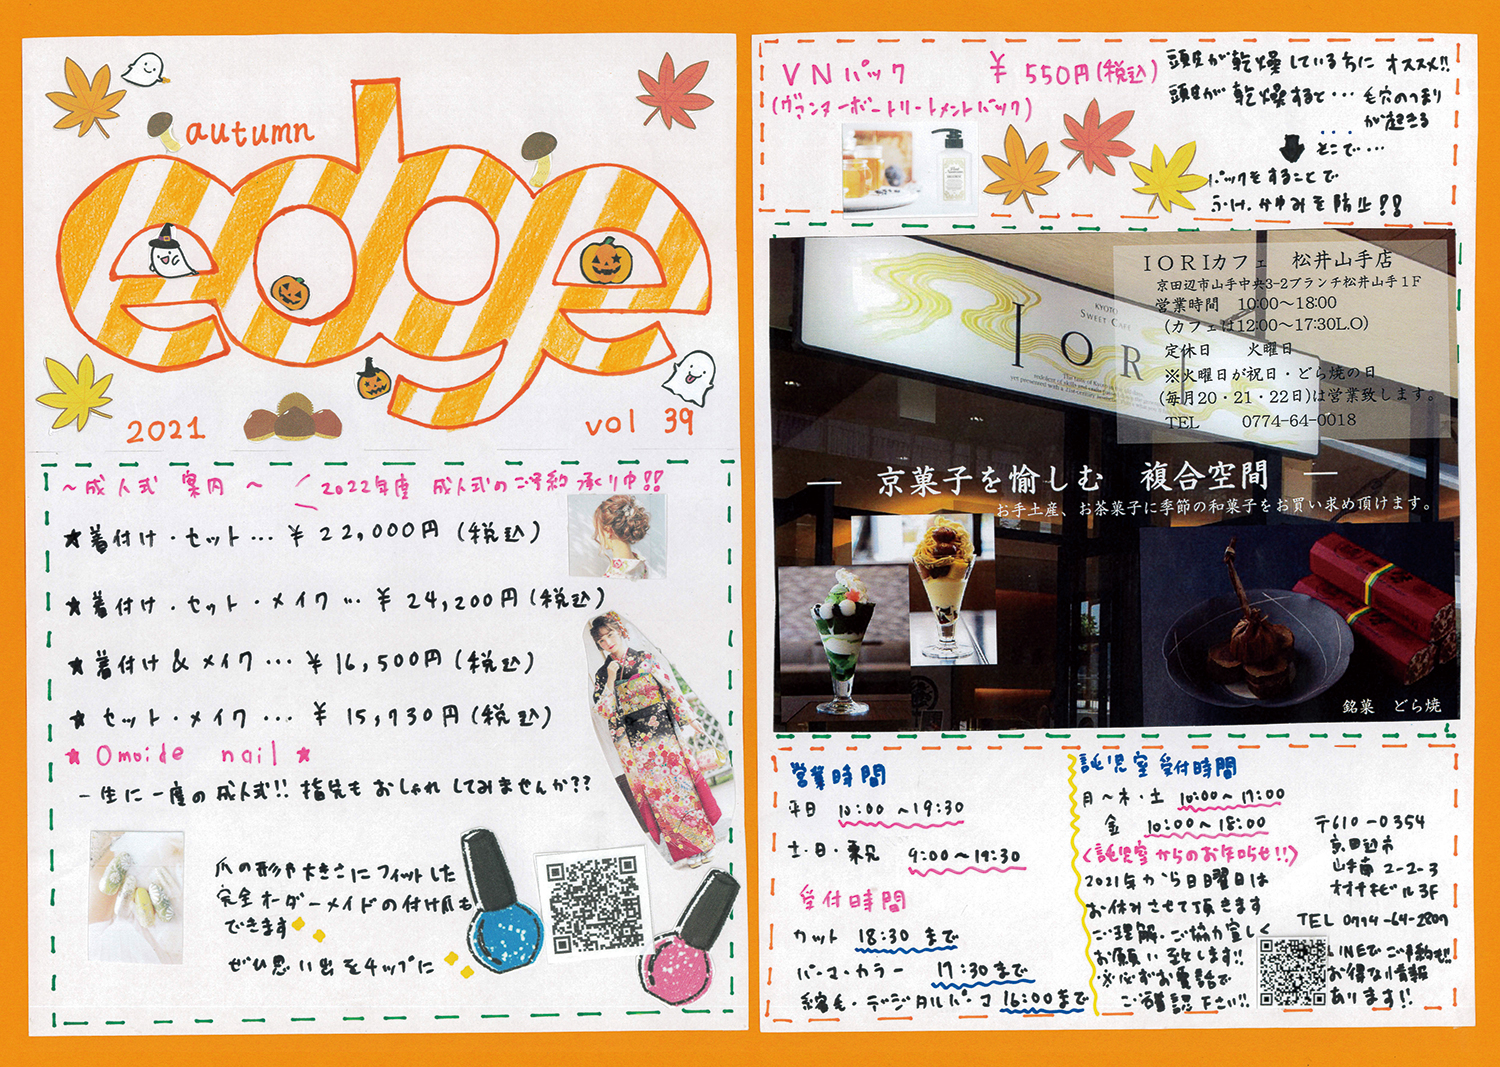 autumn
edge
2021
vol 39
～成人式 案内～
2022年度 成人式のご予約承り中!!
★着付け・セット… ¥22,000円(税込)
★着付け・セット・メイク… ¥24,200円(税込)
★着付け&メイク… ¥16,500円(税込)
★セット・メイク… ¥15,730円(税込)
★Omoide nail★
一生に一度の成人式!! 指先もおしゃれしてみませんか??
爪の形や大きさにフィットした
完全オーダーメイドの付け爪も
できます
ぜひ思い出をチップに
VNパック ¥550円(税込)
(ヴァンヌーボートリートメントパック)
頭皮が乾燥している方にオススメ!!
頭皮が乾燥すると… 毛穴のつまり
が起きる
そこで…
パックをすることで
かゆみを防止!!
IORIカフェ 松井山手店
京田辺市山手中央3-2ブランチ松井山手1F
営業時間 10:00～18:00
(カフェは12:00～17:30L.O)
定休日 火曜日
※火曜日が祝日・どら焼の日
(毎月20・21・22日)は営業致します。
TEL 0774-64-0018
KYOTO
SWEET CAFE
IOR
― 京菓子を愉しむ 複合空間 ―
お手土産、お茶菓子に季節の和菓子をお買い求め頂けます。
銘菓 どら焼
営業時間
平日 10:00～19:30
土・日・祝 9:00～19:30
受付時間
カット 18:30まで
パーマ・カラー 17:30まで
縮毛・デジタルパーマ 16:00まで
託児室 受付時間
月～木・土 10:00～17:00
金 10:00～18:00
<託児室からのお知らせ!!>
2021年から日曜日は
お休みさせて頂きます
ご理解・ご協力宜しく
お願い致します!!
※必ずお電話で
ご確認下さい!!
〒610-0354
京田辺市
山手南2-2-3
オオチキビル3F
TEL 0774-64-2807
LINEでご予約!!
お得な情報
あります!!